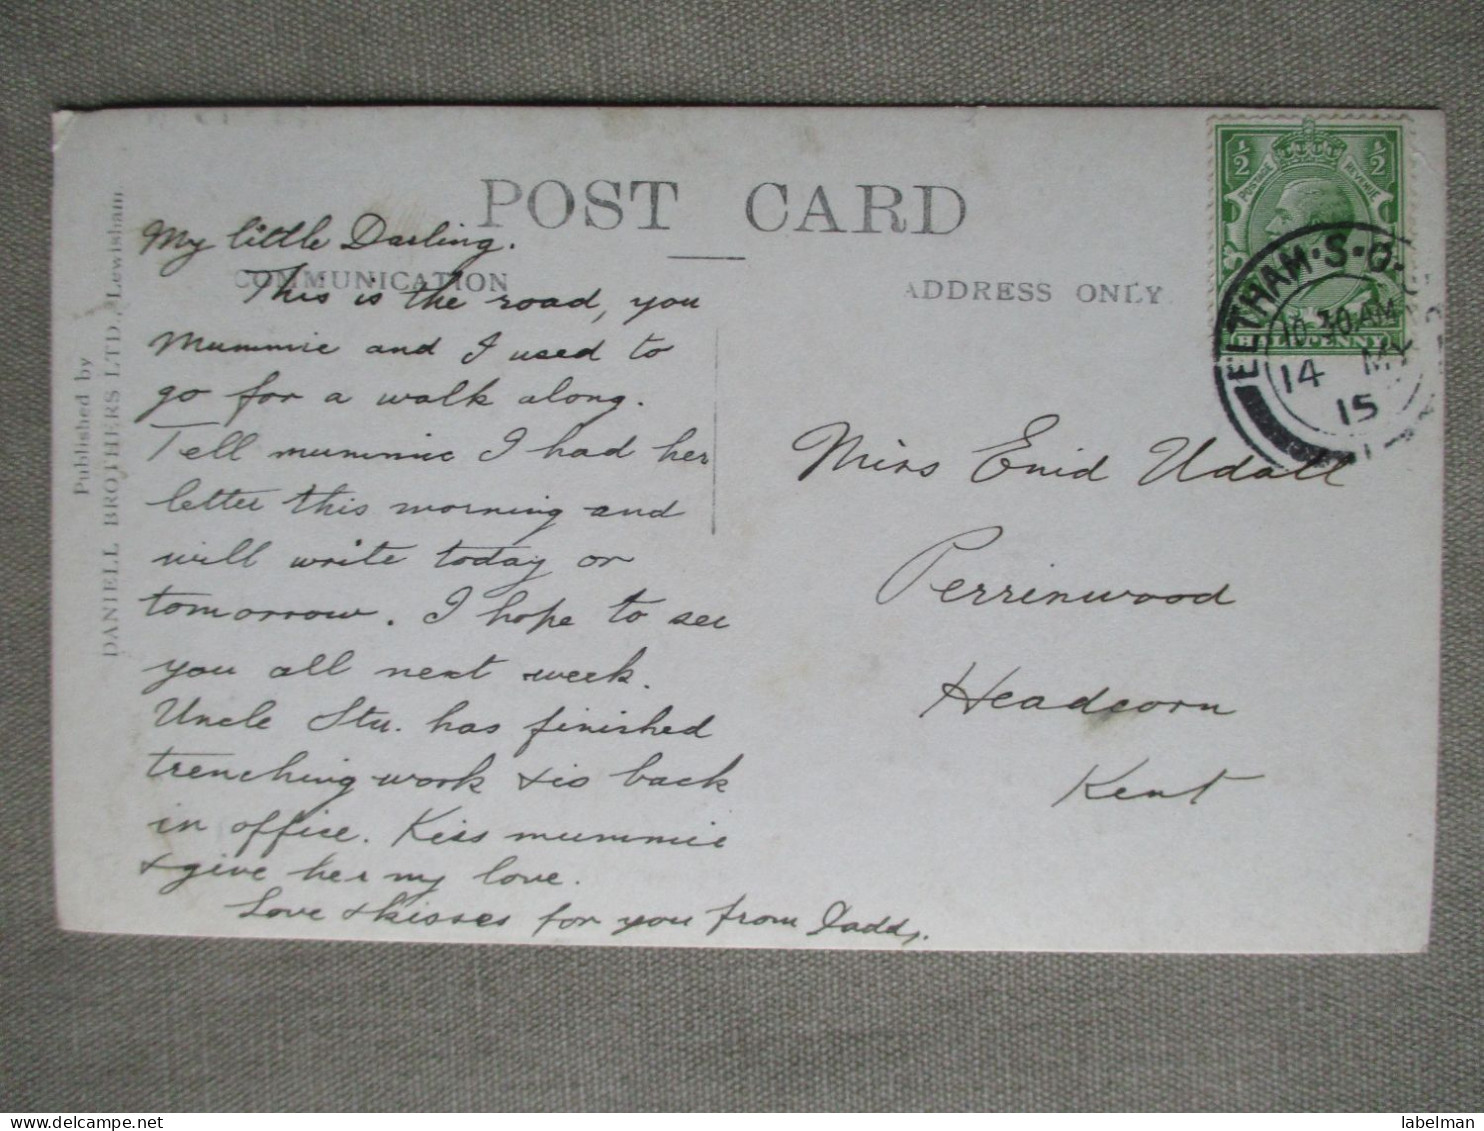 POST CARD
COMMUNICATION
ADDRESS ONLY
Published by
DANIELL BROTHERS LTD., Lewisham
My little Darling.
This is the road, you
Mummie and I used to
go for a walk along.
Tell mummie I had her
letter this morning and
will write today or
tomorrow. I hope to see
you all next week.
Uncle Stu. has finished
trenching work & is back
in office. Kiss mummie
& give her my love.
Love & kisses for you from Daddy.
Miss Enid Udall
Perrinwood
Headcorn
Kent
½ ½
POSTAGE REVENUE
HALFPENNY
ELTHAM·S·O·
10 30 AM
14 MY
15
labelman
www.delcampe.net